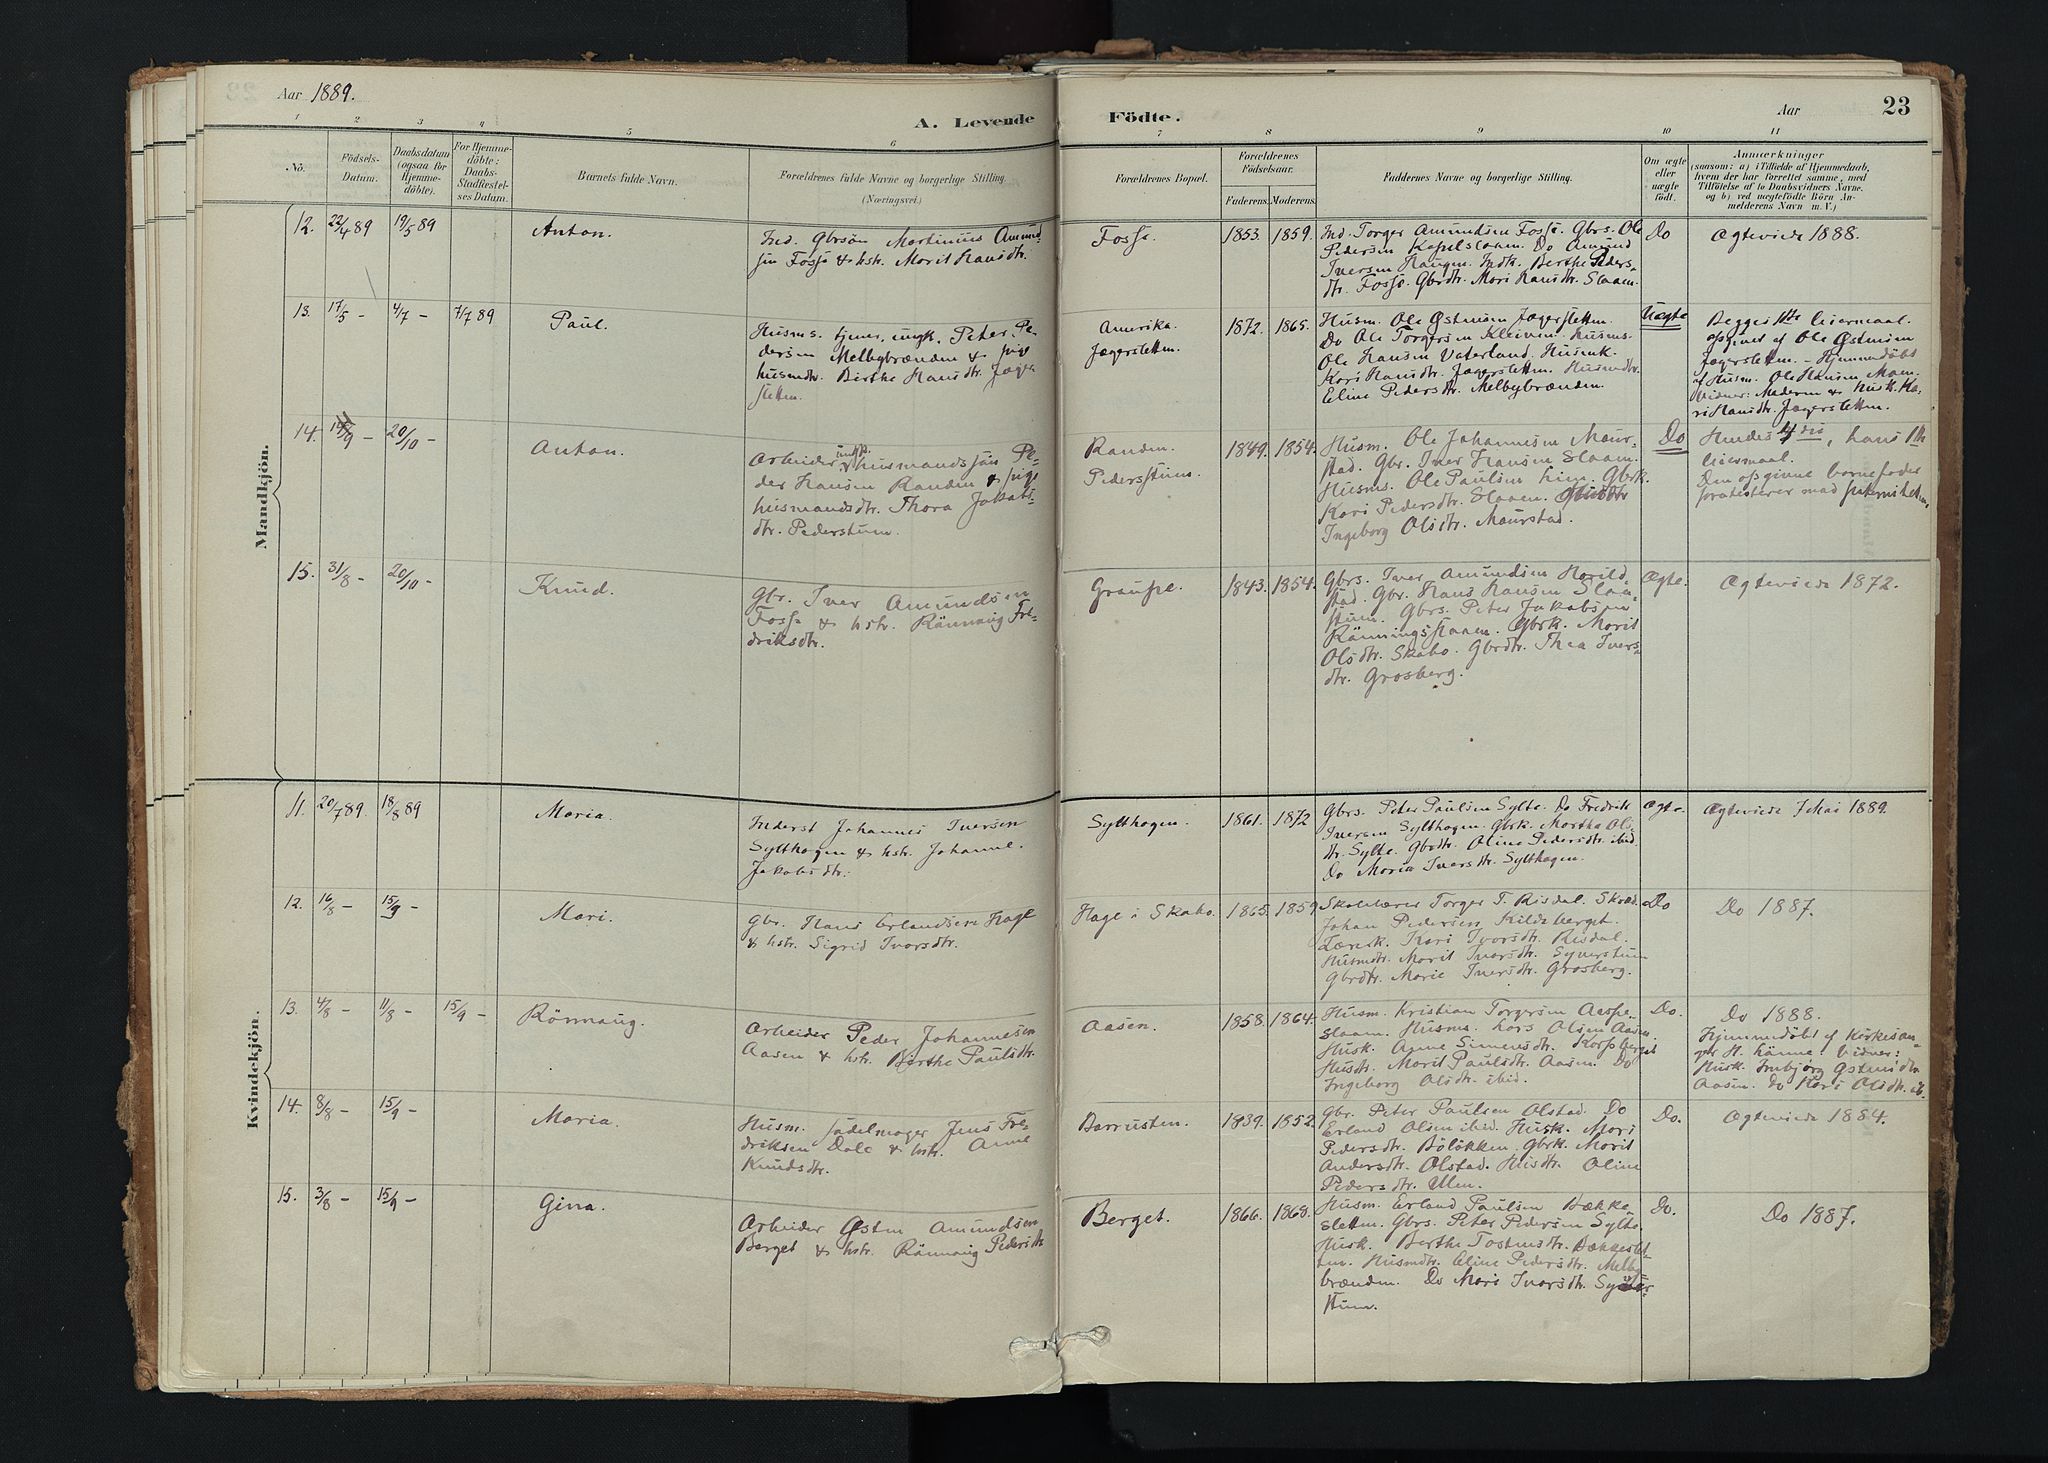 Aar 1889.
A. Levende
Födte.
Aar
23
1 2 3 4 5 6 7 8 9 10 11
No.
Födsels-
Datum.
Daabsdatum
(ogsaa for
Hjemme-
döbte).
For Hjemme-
döbte:
Daabs-
Stadfæstel-
ses Datum.
Barnets fulde Navn.
Forældrenes fulde Navne og borgerlige Stilling.
(Næringsvei.)
Forældrenes Bopæl.
Forældrenes
Födselsaar.
Faderens. Moderens.
Faddernes Navne og borgerlige Stilling.
Om ægte
eller
uægte
födt.
Anmærkninger
(saasom: a) i Tilfælde af Hjemmedaab,
hvem der har forrettet samme, med
Tilföielse af to Daabsvidners Navne,
og b) ved uægtefödte Börn An-
melderens Navn m. V.)
Mandkjön.
12. 22/4 89 19/5 89 Anton.
Ind. Gbrsön Martinius Amund-
sen Fosse & hst. Marit Hansdtr.
Fosse. 1853. 1859.
Ind. Torger Amundsen Fosse. Gbrs. Ole
Pedersen Kapelslaaen. Do Amund
Iversen Haugen. Indk. Berthe Peders-
dtr. Fosse. Gbrdtr. Mari Hansdtr. Slaaen.
Do
Ægteviede 1888.
13. 17/5 - 4/7 - 7/7 89 Paul.
Husms. tjener, ungk. Peter Pe-
dersen Melbybrænden & pige
husmdtr. Berthe Hansdtr. Jæger
sletten.
Amerika.
Jægersletten.
1872. 1865.
Husm. Ole Østensen Jægersletten.
Do Ole Torgersen Kleiven. Husms.
Ole Hansen Vaterland. Husmk.
Kari Hansdtr. Jægersletten. Husmdtr.
Eline Pedersdtr. Melbybrænden.
Uægte
Begges 1ste leiermaal.
opgivet af Ole Østensen
Jægersletten. - Hjemmedöbt
af Husm. Ole Hansen Moen.
Vidner: Moderen & Husk. Ka-
ri Hansdtr. Jægersletten.
14. /9 - 20/10 - Anton.
Arbeider, ungk. husmandssön Pe-
der Hansen Randen & pige
husmandsdtr. Thora Jakobs-
dtr. Pederstuen.
Randen.
Pedersstuen.
1849. 1854.
Husm. Ole Johannesen Maur-
stad. Gbr. Iver Hansen Slaaen.
Husms. Ole Paulsen Lien. Gbrk.
Kari Pedersdtr. Slaaen. Husdtr
Ingeborg Olsdtr. Maurstad.
Do
Hendes 4de, hans 1ste
leiermaal.
Den opgivne barnefader
protesterer mod paterniteten.
15. 31/8 - 20/10 - Knud.
Gbr. Iver Amundsen
Fosse & hst. Rönnaug Fre-
driksdtr.
Graupe. 1843. 1854.
Gbrs. Iver Amundsen Horild-
stad. Gbr. Hans Hansen Slaa-
stuen. Gbrs. Peter Jakobsen
Rönningsslaaen. Gbrk. Marit
Olsdtr. Skabo. Gbrdtr. Thea Ivers-
dtr. Grosberg.
Ægte.
Ægteviede 1872.
Kvindekjön.
11. 20/7 89. 18/8 89 Maria.
Inderst Johannes Iversen
Sylthagen & hst. Johanne
Jakobsdtr.
Sylthagen. 1861. 1872
Gbrs. Peter Paulsen Sylte. Do Fredrik
Iversen Sylthagen. Gbrk. Martha Ols-
dtr. Sylte. Gbrdtr. Oline Pedersdtr. ibid.
Do Maria Iversdtr. Sylthagen.
Ægte.
Ægteviede 7 Mai 1889.
12. 16/8 - 15/9 - Mari.
Gbr. Hans Erlandsen Hage
& hst. Sigrid Ivarsdtr.
Hage i Skabo. 1865. 1859
Skolelærer Torger T. Risdal. Skræd.
Johan Pedersen Kildeberget.
Lærsk. Kari Ivarsdtr. Risdal.
Husmdtr. Marit Ivarsdtr. Syverstuen
Gbrdtr. Marie Iversdtr. Grosberg.
Do
Do 1887.
13. 4/8 - 11/8 - 15/9 - Rönnaug.
Arbeider Peder Johannesen
Aasen & hst. Berthe Paulsdtr.
Aasen. 1858. 1864.
Husm. Kristian Torgersen Aaspe-
slaaen. Husms. Lars Olsen Aasen
Husk. Anne Simensdtr. Korpberget
Husdtr. Marit Paulsdtr. Aasen. Do
Ingeborg Olsdtr. ibid.
Do.
Do 1888.
Hjemmedöbt af Kirkesan-
ger H. Lönne. Vidner:
Husk. Inbjørg Østensdtr
Aasen. Do Kari Olsdtr. ib.
14. 8/8 - 15/9 - Maria.
Husm. sadelmager Jens Fre-
driksen Dale & hst. Anne
Knudsdtr.
Barrusten. 1839. 1852.
Gbr. Peter Paulsen Olstad. Do
Erland Olsen ibid. Husk. Mari
Pedersdtr. Bölökken. Gbrk. Marit
Andersdtr. Olstad. Husdtr. Oline
Pedersdtr. Ulen.
Do.
Ægteviede 1884.
15. 3/8 - 15/9 - Gina.
Arbeider Østen Amundsen
Berget & hst. Rönnaug Pedersdtr
Berget. 1866. 1868.
Husm. Erland Paulsen Bække-
sletten. Gbrs. Peter Pedersen Sylte.
Husk. Berthe Tostensdtr. Bækkeslet-
ten. Husmdtr. Eline Pedersdtr. Melby
brænden. Do Mari Ivarsdtr. Syver-
stuen.
Do.
Do 1887.